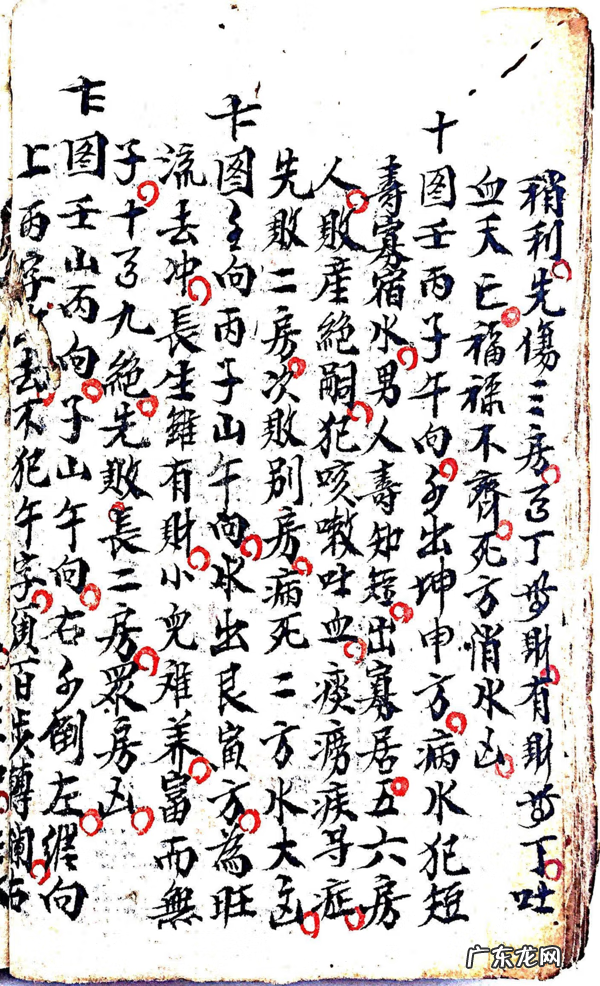 稍利先傷三房有丁無財有財無丁吐
血夭亡福祿不齊死方悄水凶
十图壬丙子午向水出坤申方病水犯短
壽寡宿水男人壽知短出寡居五六房
人敗産絕嗣犯咳嗽吐血痰癆疾等症
先敗二房次敗别房病死二方水大凶
图壬向丙子山午向水出艮寅方為旺
流去冲長生雖有財小兒难养富而無
子十有九絕先敗長二房眾房凶
图壬山丙向子山午向右水倒左纒向
上丙字去不犯午字須百步轉阑右
广东龙网